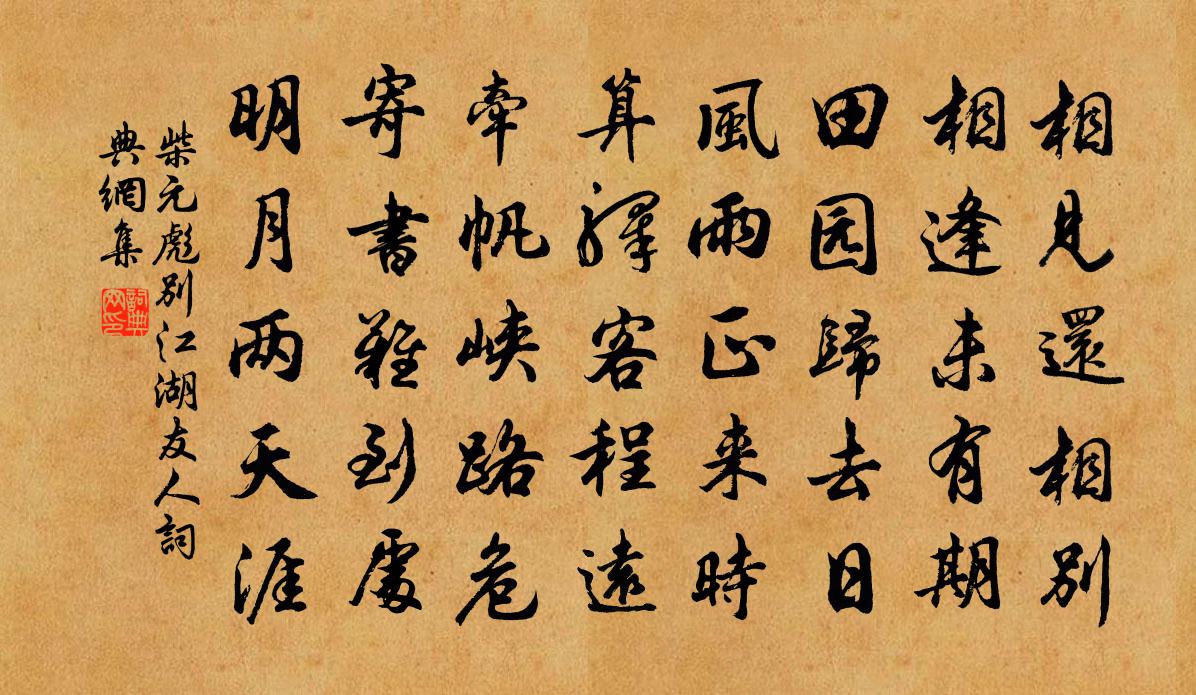 相見還相別
相逢未有期
田园歸去日
風雨正来時
算驛客程遠
牽帆峽路危
寄書難到處
明月两天涯
柴元彪别江湖友人詞
典網集
詞典
网印